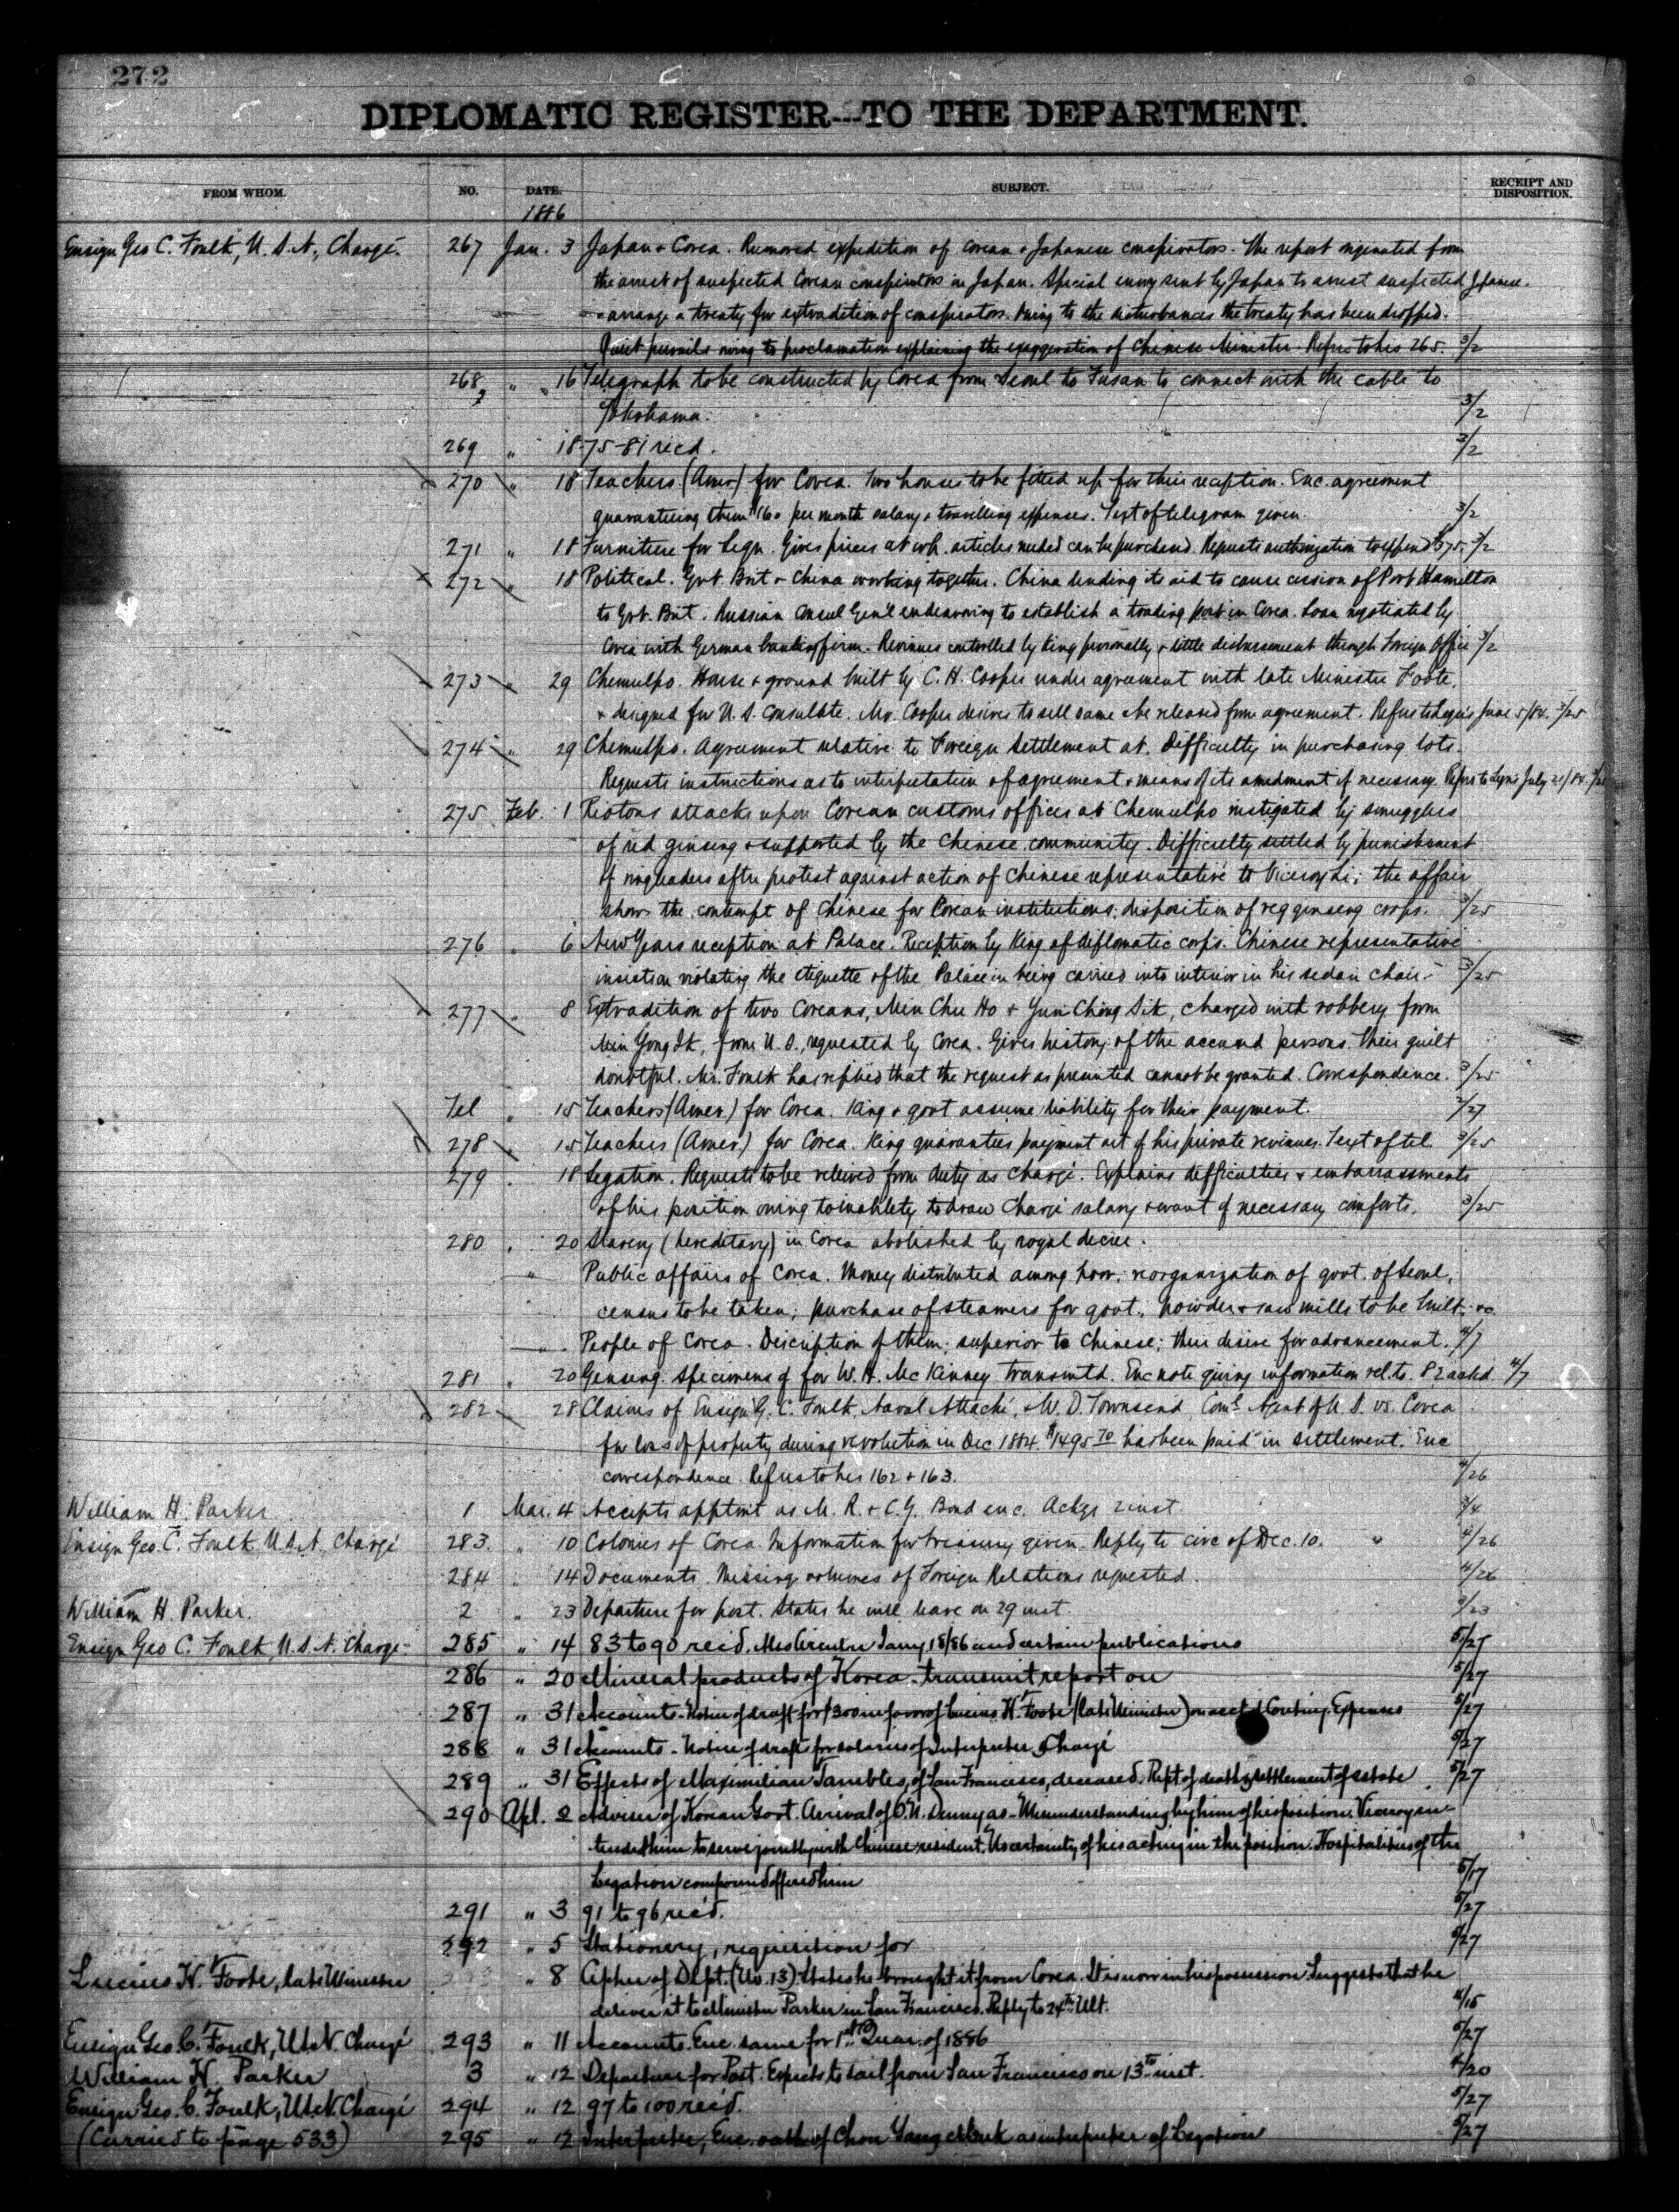 272
DIPLOMATIC REGISTER---TO THE DEPARTMENT.
FROM WHOM. NO. DATE. SUBJECT. RECEIPT AND DISPOSITION.
1886
Ensign Geo C. Foulk, U.S.N., Chargé. 267 Jan. 3 Japan & Corea. Rumored expedition of Corean & Japanese conspirators. The report originated from
the arrest of suspected Corean conspirators in Japan. Special envoy sent by Japan to arrest suspected Japanese.
& arrange a treaty for extradition of conspirators. Owing to the disturbances the treaty has been dropped.
Quiet prevails owing to proclamation explaining the exaggeration of Chinese Minister. Refers to his 265. 3/2
268 " 16 Telegraph to be constructed by Corea from Seoul to Fusan to connect with the cable to
Yokohama. 3/2
269 " 18 75-81 recd. 3/2
270 " 18 Teachers (Amer) for Corea. Two houses to be fitted up for their reception. Enc. agreement
guaranteeing them $160 per month salary & travelling expenses. Text of telegram given. 3/2
271 " 18 Furniture for Legn. Gives prices at wh. articles needed can be purchased. Requests authorization to expend $375. 3/2
272 " 18 Political. Govt. Brit & China working together. China lending its aid to cause cession of Port Hamilton
to Gvt. Brit. Russian Consul Gen'l endeavoring to establish a trading port in Corea. Loan negotiated by
Corea with German banking firm. Revenues controlled by King personally & little disbursement through Foreign Office 3/2
273 " 29 Chemulpo. House & ground built by C. H. Cooper under agreement with late Minister Foote,
& designed for U.S. Consulate. Mr. Cooper desires to sell same & be released from agreement. Refers to Legn's June 5/84. 3/25
274 " 29 Chemulpo. Agreement relative to Foreign Settlement at. Difficulty in purchasing lots.
Requests instructions as to interpretation of agreement & means of its amendment if necessary. Refers to Legn's July 21/84.
275 Feb. 1 Riotous attacks upon Corean customs offices at Chemulpo instigated by smugglers
of red ginseng & supported by the Chinese community. Difficulty settled by punishment
of ringleaders after protest against action of Chinese representative to Viceroy Li; the affair
shows the contempt of Chinese for Corean institutions; disposition of red ginseng crops. 3/25
276 " 6 New Years reception at Palace. Reception by King of diplomatic corps. Chinese representative
insists on violating the etiquette of the Palace in being carried into interior in his sedan chair. 3/25
277 " 8 Extradition of two Coreans, Min Chu Ho & Yun Chong Sik, charged with robbery from
Min Yong Ik, from U.S., requested by Corea. Gives history of the accused persons. Their guilt
doubtful. Mr. Foulk has replied that the request as presented cannot be granted. Correspondence. 3/25
Tel " 15 Teachers (Amer.) for Corea. King & govt assume liability for their payment. 2/27
278 " 15 Teachers (Amer.) for Corea. King guarantees payment out of his private revenues. Text of tel. 3/25
279 " 18 Legation. Requests to be relieved from duty as Chargé. Explains difficulties & embarrassments
of his position owing to inability to draw Chargé salary & want of necessary comforts. 3/25
280 " 20 Slavery (hereditary) in Corea abolished by royal decree.
" Public affairs of Corea. Money distributed among poor; reorganization of govt. of Seoul;
census to be taken; purchase of steamers for govt.; powder & saw mills to be built, &c.
" People of Corea. Description of them; superior to Chinese; their desire for advancement. 4/7
281 " 20 Genseng. Specimens of for W. H. McKinney transmtd. Enc note giving information rel. to. P 2 ackd. 4/7
282 " 28 Claims of Ensign G. C. Foulk, Naval Attaché, & W. D. Townsend, Coml. Agent of U.S. vs. Corea
for loss of property during revolution in Dec 1884. $1495 70 has been paid in settlement. Enc
correspondence. Refers to his 162 & 163. 4/26
William H. Parker 1 Mar. 4 Accepts apptmt as M. R. & C. G. Bond enc. Ackgs 2 inst. 3/4
Ensign Geo. C. Foulk U.S.N. Chargé 283. " 10 Colonies of Corea. Information for Treasury given. Reply to circ of Dec. 10. " 4/26
284 " 14 Documents. Missing volumes of Foreign Relations requested. 4/26
William H. Parker. 2 " 23 Departure for post. States he will leave on 29 inst. 3/23
Ensign Geo C. Foulk, U.S.N. Chargé. 285 " 14 83 to 90 rec'd. Also Circular Jany 18/86 and certain publications 5/27
286 " 20 Mineral products of Korea. transmit report on 5/27
287 " 31 Accounts. Notice of draft for $300 in favor of Lucius H. Foote (late Minister) on acct of Conting. Expenses 5/27
288 " 31 Accounts. Notice of drafts for salaries of Interpreter & Chargé 5/27
289 " 31 Effects of Maximilian Tambles, of San Francisco, deceased. Rept of death & settlement of estate 5/27
290 Apl. 2 Adviser of Korean Govt. Arrival of O. N. Denny as. Misunderstanding by him of his position. Viceroy in-
tended him to serve jointly with Chinese resident. Uncertainty of his acting in the position. Hospitalities of the
Legation compound offered him 5/17
291 " 3 91 to 96 rec'd. 5/27
292 " 5 Stationery, requisition for 5/27
Lucius H. Foote, late Minister " 8 Cipher of Dept. (No. 13). States he brought it from Corea. It is now in his possession. Suggests that he
deliver it to Minister Parker in San Francisco. Reply to 24th Ult. 4/15
Ensign Geo. C. Foulk, U.S.N. Chargé 293 " 11 Accounts. Enc. same for 1st Quar. of 1886 5/27
William H. Parker 3 " 12 Departure for Post. Expects to sail from San Francisco on 13th inst. 4/20
Ensign Geo. C. Foulk, U.S.N. Chargé 294 " 12 97 to 100 rec'd. 5/27
(Carried to page 533) 295 " 12 Interpreter, Enc. oath of Chon Yang Muk as interpreter of Legation 5/27